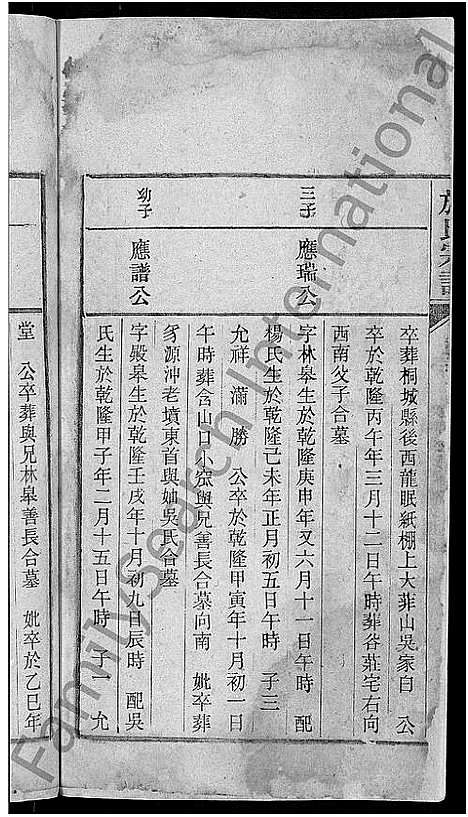 氏宗譜
卒葬桐城縣後西龍眠紙棚上大葬山吳家自 公
卒於乾隆丙午年三月十二日午時葬谷莊宅右向
西南父子合墓
三子
應瑞公
字林皋生於乾隆庚申年又六月十一日午時 配
楊氏生於乾隆己未年正月初五日午時 子三
允祥 滿 勝 公卒於乾隆甲寅年十月初一日
午時葬含山口小凹與兄善長合墓向南 妣卒葬
源沖老墳東首與妯吳氏合墓
幼子
應譜公
字殿皋生於乾隆壬戌年十月初九日辰時 配吳
氏生於乾隆甲子年二月十五日午時 子一 允
堂 公卒葬與兄林皋善長合墓 妣卒於乙巳年
FamilySearch International